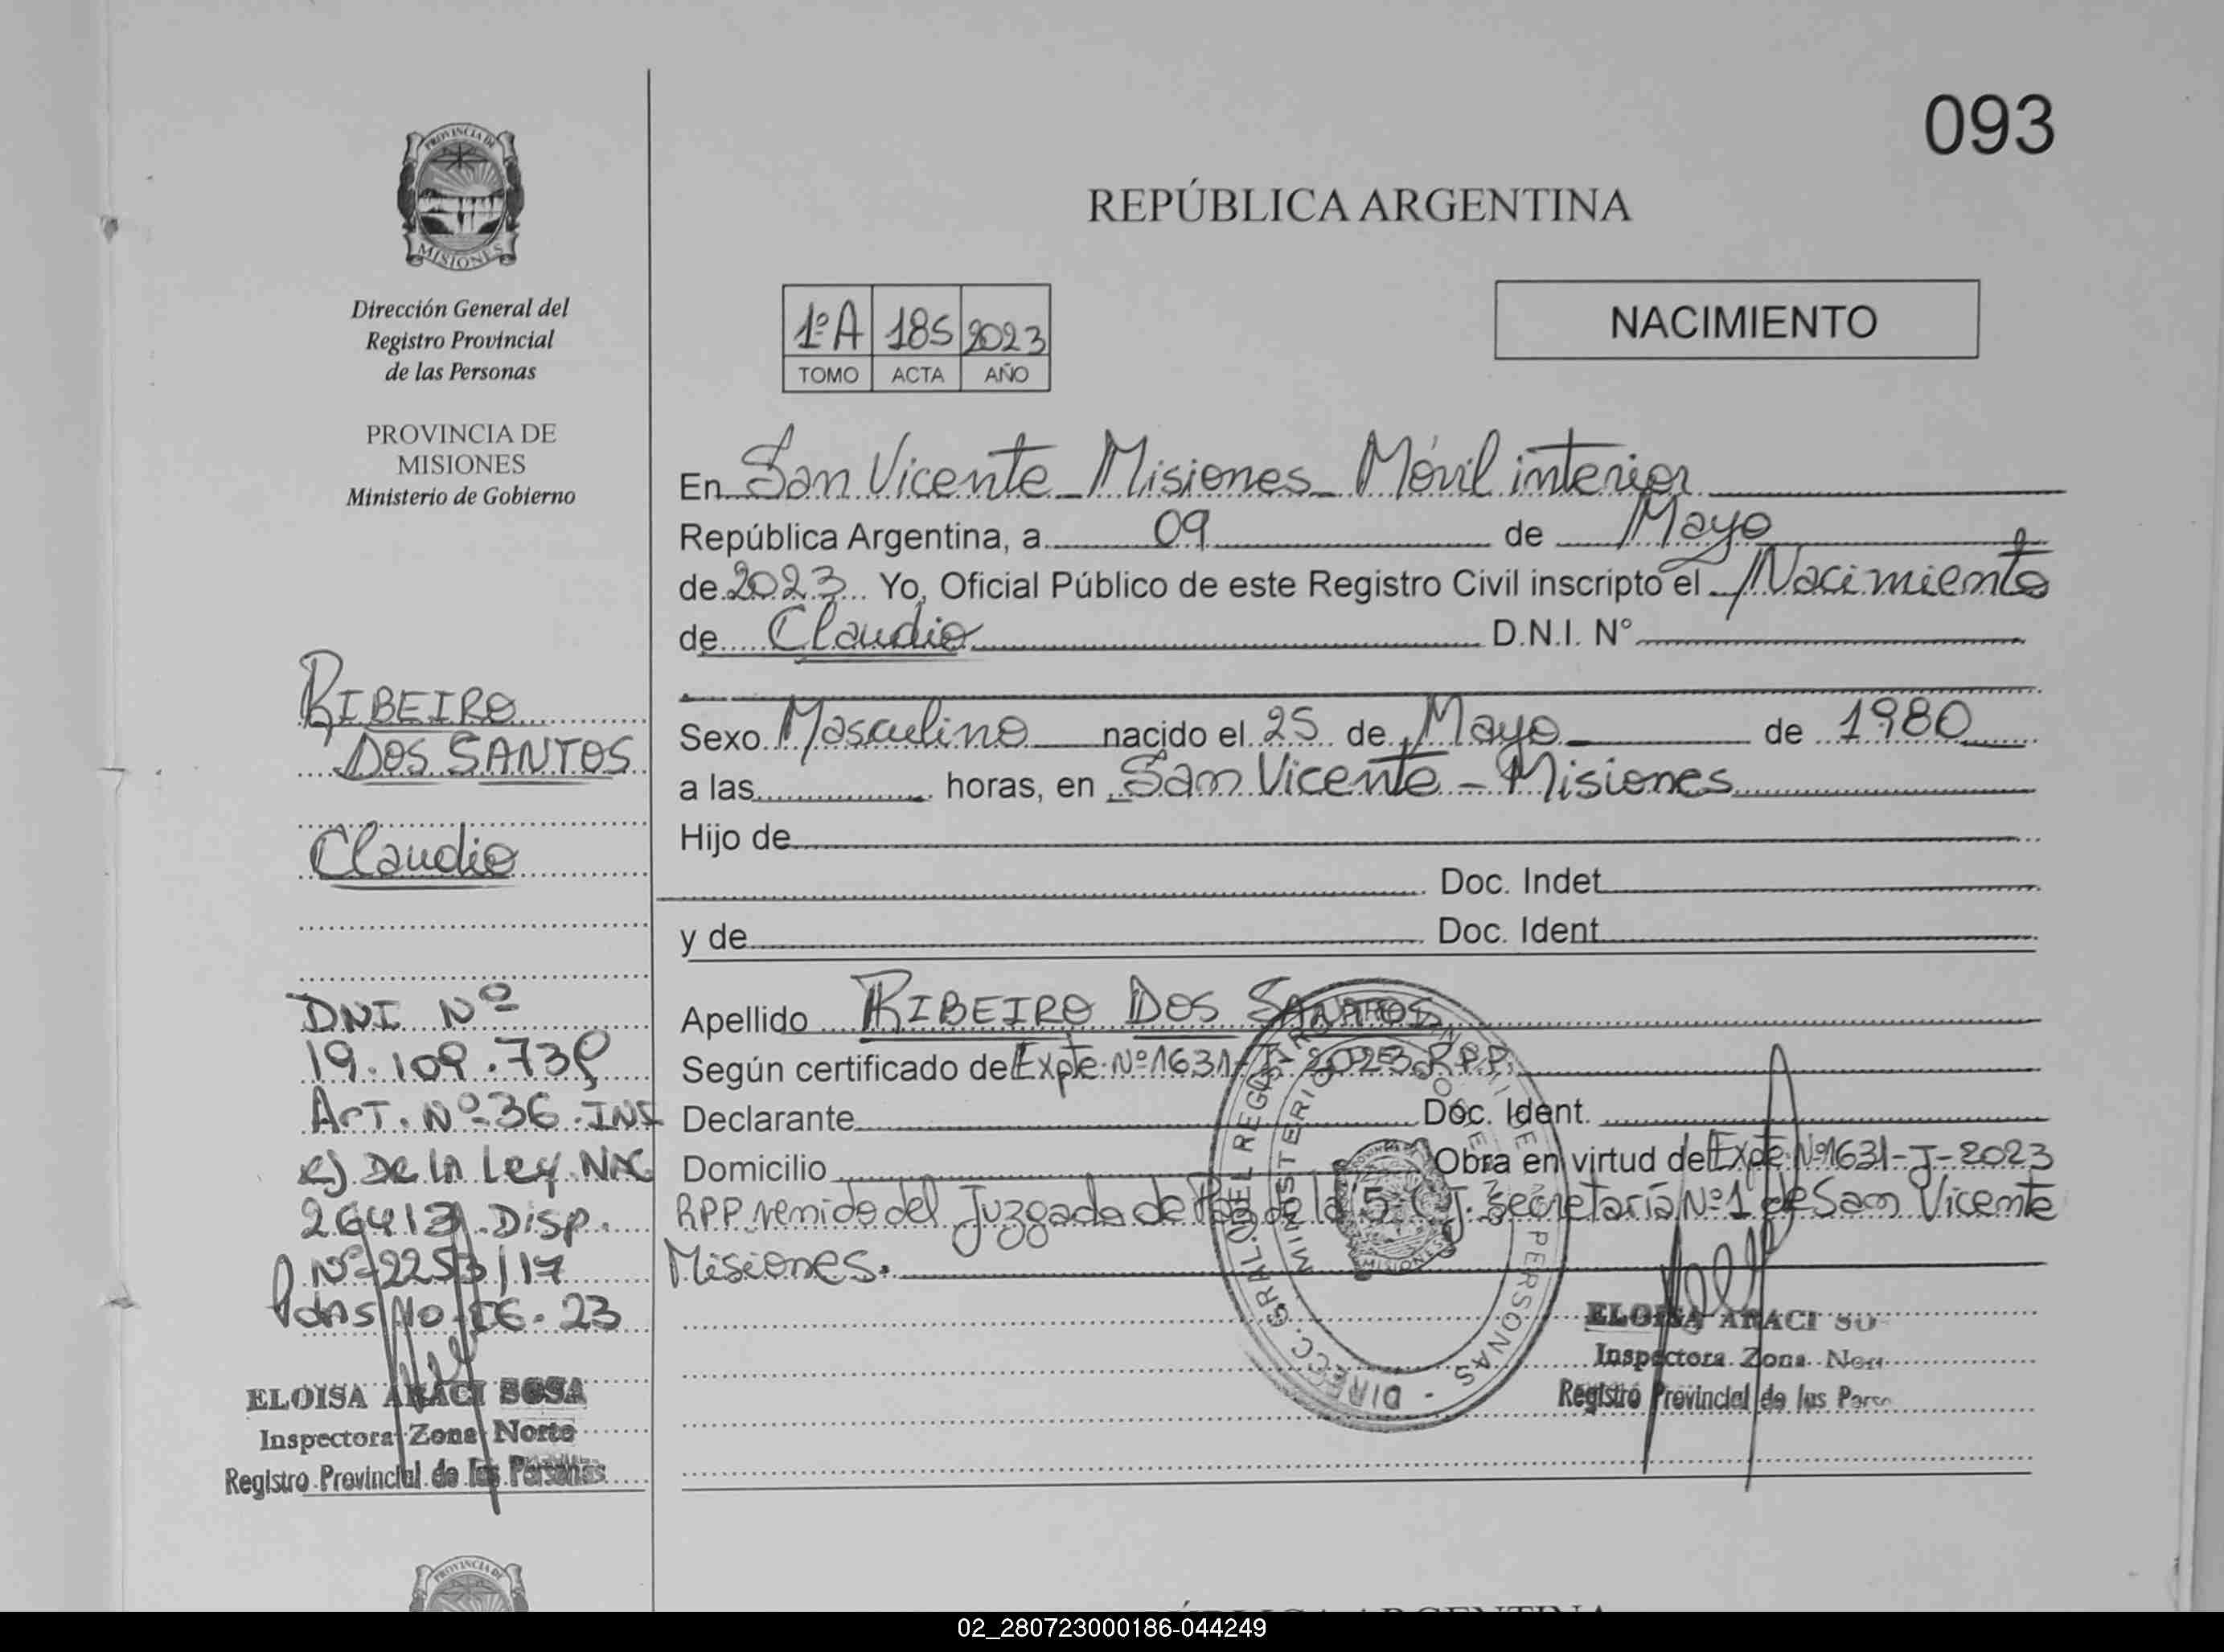 093
PROVINCIA DE
MISIONES
Dirección General del
Registro Provincial
de las Personas
PROVINCIA DE
MISIONES
Ministerio de Gobierno
RIBEIRO
DOS SANTOS
Claudio
DNI Nº
19.109.73
Art. Nº 36. INS
c) De la Ley NAC
26413. Disp.
Nº 2253/17
Pdas 10.06.23
ELOISA ARACI SOSA
Inspectora Zona Norte
Registro Provincial de las Personas
REPÚBLICA ARGENTINA
NACIMIENTO
1ºA 185 2023
TOMO ACTA AÑO
En San Vicente Misiones Móvil interior
República Argentina, a 09 de Mayo
de 2023 Yo, Oficial Público de este Registro Civil inscripto el Nacimiento
de Claudio D.N.I. N°
Sexo Masculino nacido el 25 de Mayo de 1980
a las horas, en San Vicente - Misiones
Hijo de
Doc. Indet
y de Doc. Ident
Apellido RIBEIRO DOS SANTOS
Según certificado de Expte. Nº 1631-J-2023 RPP.
Declarante Doc. Ident.
Domicilio Obra en virtud de Expte Nº1631-J-2023
RPP venido del Juzgado de Paz de la 5º C.J. Secretaría Nº1 de San Vicente
Misiones.
DIRECC. GRAL. DEL REG PERSONAS
MINISTERIO DE GO
MISIONES
ELOISA ARACI SO
Inspectora Zona Nor
Registro Provincial de las Perso
PROVINCIA DE
02_280723000186-044249